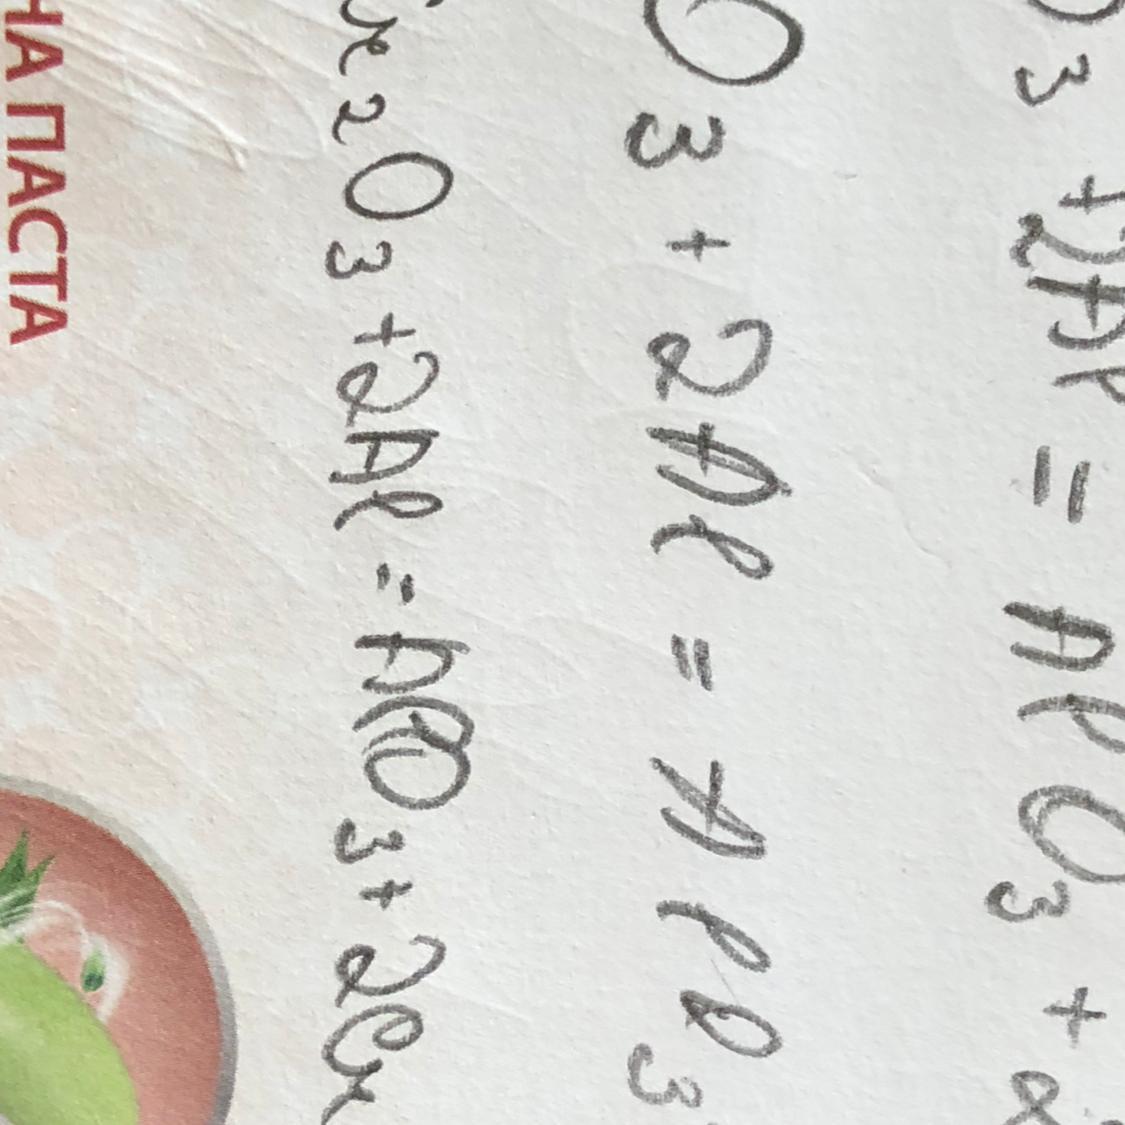 O3 +2Al = AlO3 + 2
O3 + 2Al = AlO3
2O3 +2Al = AlO3 + 2Cr
НА ПАСТА